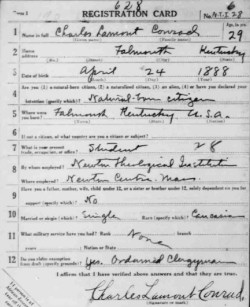 628 6
Form 1 REGISTRATION CARD No. 28
1 Name in full Charles Lamont Conrad Age, in yrs. 29
(Given name) (Family name)
2 Home address Falmouth Kentucky
3 Date of birth April 24 1888
(Month) (Day) (Year)
4 Are you (1) a natural-born citizen, (2) a naturalized citizen, (3) an alien, (4) or have you declared your
intention (specify which)? Natural-born citizen
5 Where were you born? Falmouth Kentucky U.S.A.
6 If not a citizen, of what country are you a citizen or subject?
7 What is your present trade, occupation, or office? Student 28
8 By whom employed? Newton Theological Institute
Where employed? Newton Centre, Mass.
9 Have you a father, mother, wife, child under 12, or a sister or brother under 12, solely dependent on you for
support (specify which)? No
10 Married or single (which)? Single Race (specify which)? Caucasian
11 What military service have you had? Rank None branch
years Nation or State
12 Do you claim exemption from draft (specify grounds)? Yes. Ordained Clergyman
I affirm that I have verified above answers and that they are true.
Charles Lamont Conrad